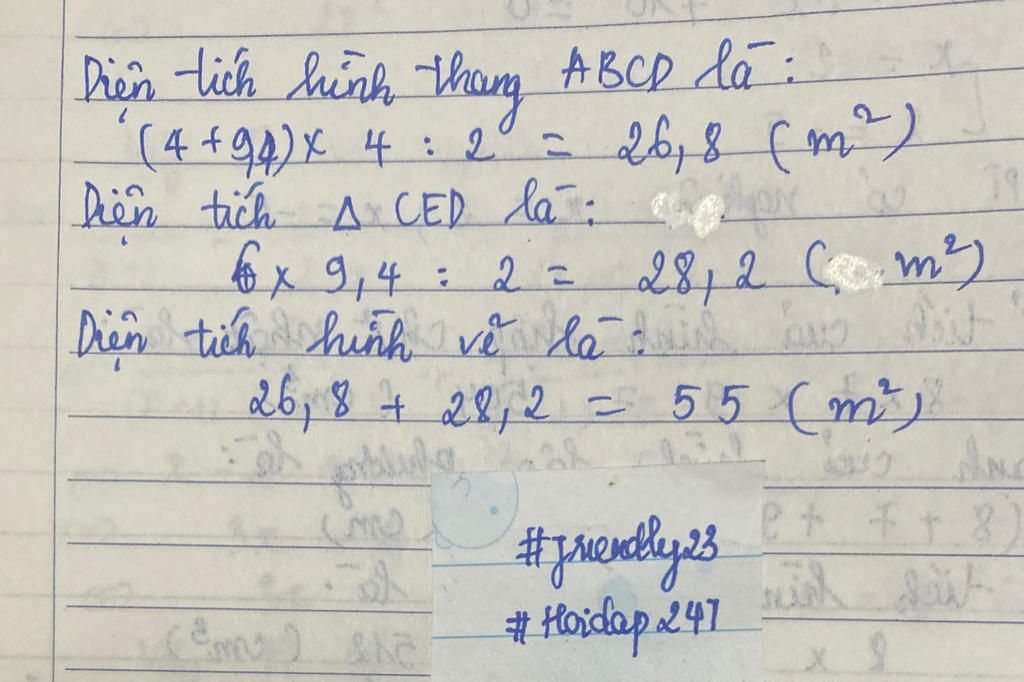 Diện tích hình thang ABCD là:
(4 + 9,4) x 4 : 2 = 26,8 (m²)
Diện tích Δ CED là:
6 x 9,4 : 2 = 28,2 (m²)
Diện tích hình vẽ là:
26,8 + 28,2 = 55 (m²)
#friendly23
#Hoidap247